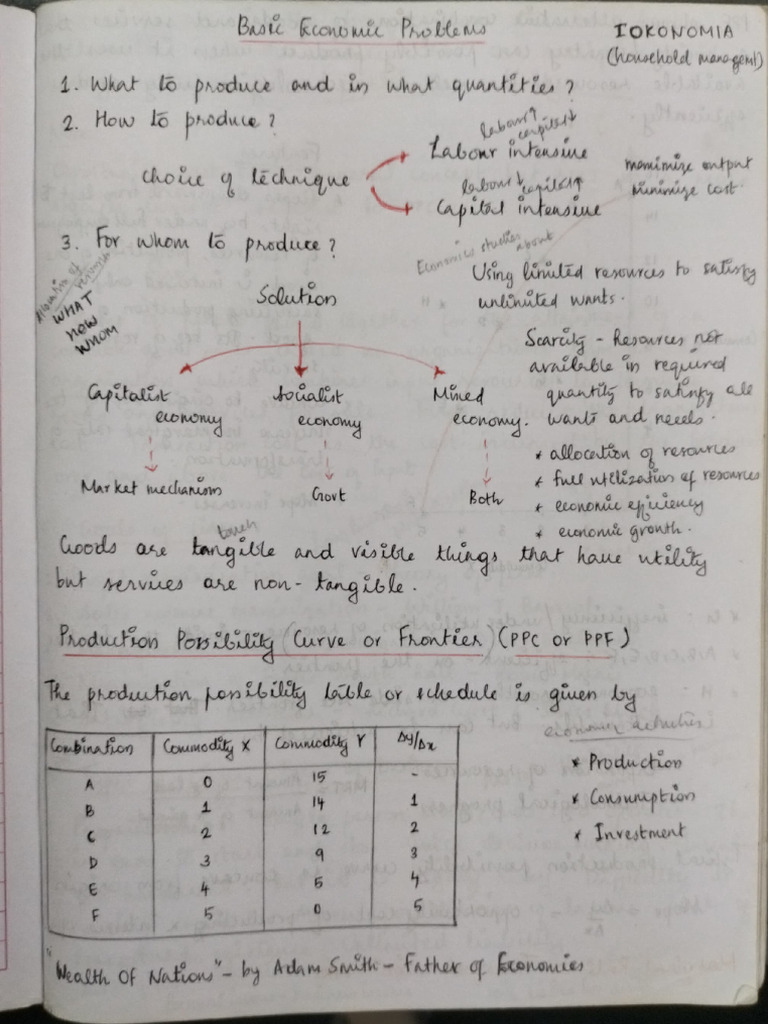 Basic Economic Problems
IOKONOMIA
(household managemt)
1. What to produce and in what quantities?
2. How to produce?
labour↑ capital↓
Labour intensive
choice of technique
labour↓ capital↑
Capital intensive
maximize output
Minimize cost.
3. For whom to produce?
Economics studies about
Using limited resources to satisfy
unlimited wants.
Allocation of resources
WHAT
HOW
WHOM
Solution
Scarcity - Resources not
available in required
quantity to satisfy all
wants and needs.
Capitalist
economy
Socialist
economy
Mixed
economy.
Market mechanism
Govt
Both
* allocation of resources
* full utilization of resources
* economic efficiency
* economic growth.
touch
Goods are tangible and visible things that have utility
but services are non-tangible.
Production Possibility Curve or Frontier (PPC or PPF)
The production possibility table or schedule is given by
economic activities
* Production
* Consumption
* Investment
Combination Commodity X Commodity Y Δy/Δx
A 0 15 -
B 1 14 1
C 2 12 2
D 3 9 3
E 4 5 4
F 5 0 5
"Wealth Of Nations" - by Adam Smith - Father of Economics